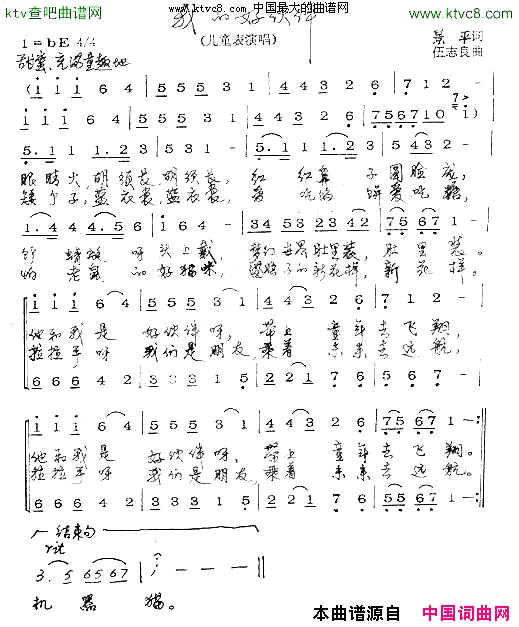 ktv查吧曲谱网
www.ktvc8.com 中国最大的曲谱网 www.ktvc8.com
我的好伙伴
(儿童表演唱)
1=bE 4/4
景 平词
伍志良曲
甜蜜、充满童趣地
(i i i 6 4 | 5 5 5 3 1 | 4 4 3 2 6 | 7 5 6 7 1 0 i)
i i i 6 4 | 5 5 5 3 1 | 4 4 3 2 6 | 7 5 6 7 1 0
5. 1 1 | 5. 1 1 | 3 2 1 2 3 | 5 4 3 2
眼睛大,胡须长,胡须长, 红 红鼻 子圆脸庞,
矮个子,蓝衣裳,蓝衣裳, 爱 吃馅 饼爱吃糖,
1. 4 4 4. 5 6 | 1 6 5 4 2 | 3 4 5 3 2 3 4 2 | 7 5 6 7 1
竹 蜻蜓 呀头上戴 梦幻世界肚里装,肚里装。
怕 老鼠 的好猫咪 新花样。
i i i 6 4 | 5 5 5 3 1 | 4 4 3 2 6 | 7 1 2
他和我是 好伙伴呀, 带上 童年去飞翔,
拉拉手呀 我们是朋友,乘着 未来去远航,
6 6 6 4 2 | 3 3 3 1 5 | 2 2 1 7 6 | 5 6 7
i i i 6 4 | 5 5 5 3 1 | 4 4 3 2 6 | 7 5 6 7 1 -
他和我是 好伙伴呀, 带上 童年去飞翔。
拉拉手呀 我们是朋友,乘着 未来去远航。
6 6 6 4 2 | 3 3 3 1 5 | 2 2 1 7 6 | 5 5 6 7 1 -
结束句
rit
3. 5 6 5 6 7 | i - -
机 器 猫。
本曲谱源自 中国词曲网